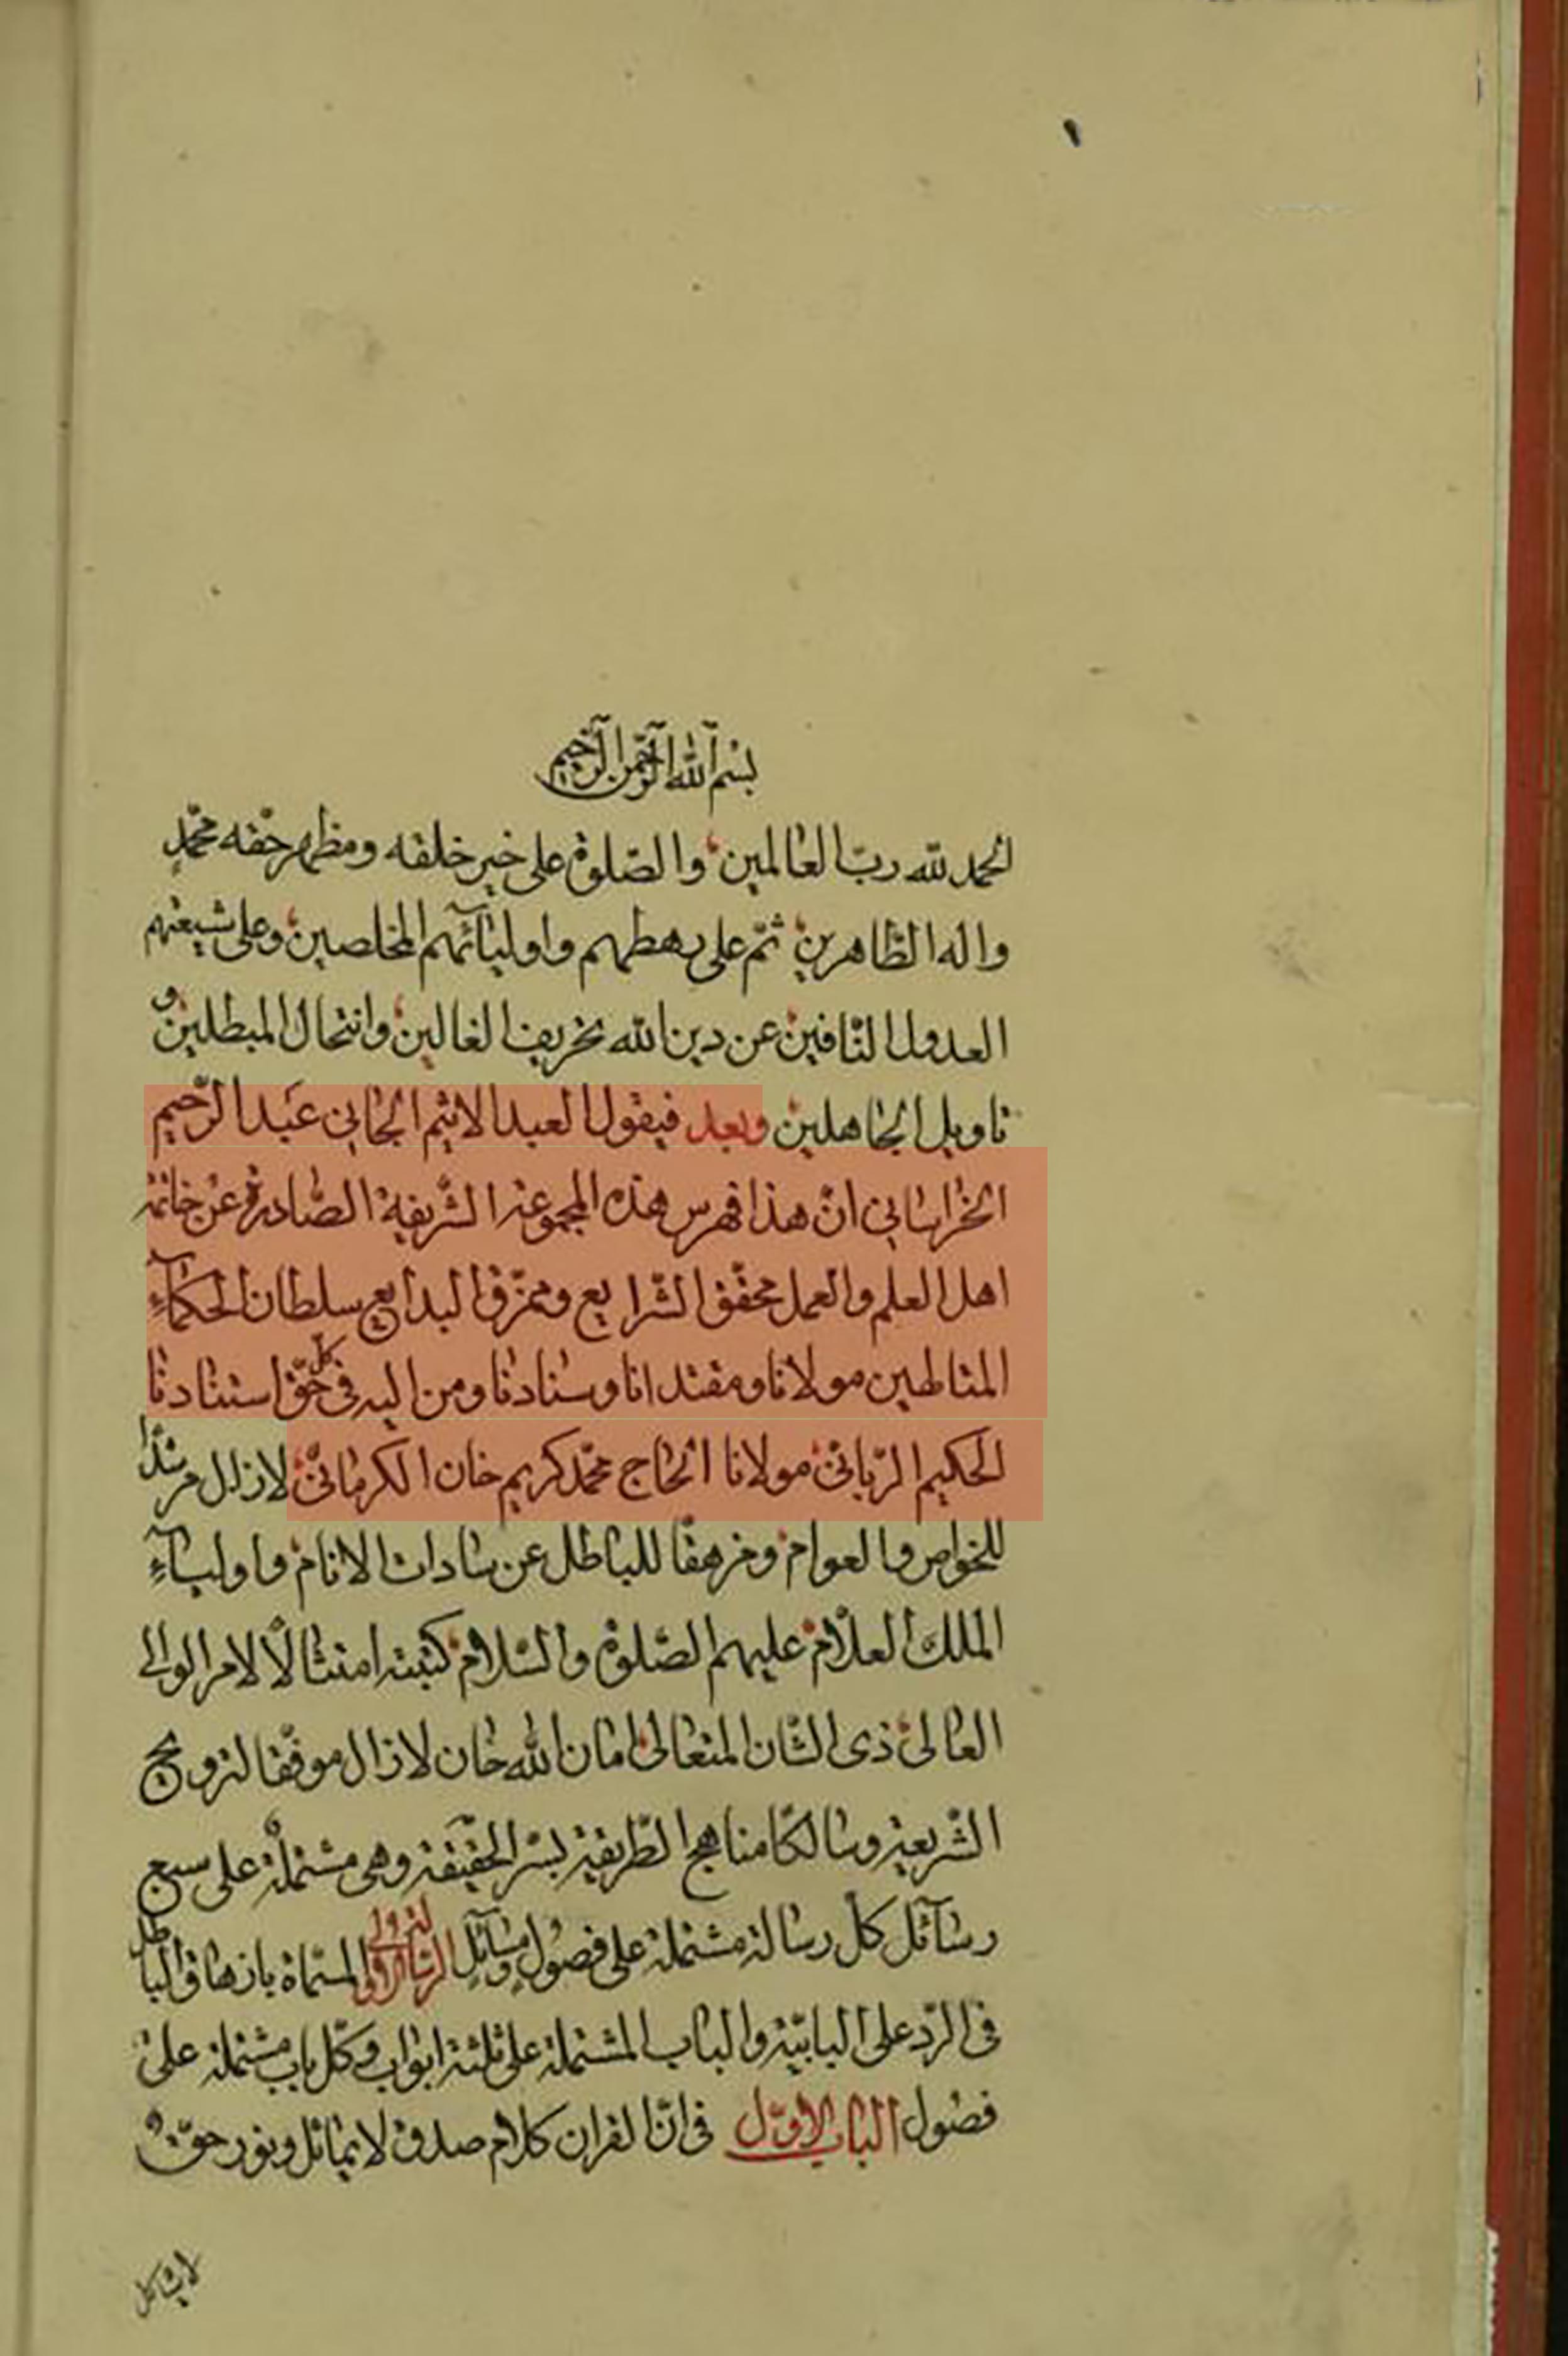 ١
بسم الله الرحمن الرحيم
الحمد لله ربّ العالمين والصّلوة على خير خلقه ومظهر حقّه محمّدٍ
واله الطّاهرين ثمّ على رهطهم واوليائهم المخلصين وعلى شيعتهم
العدول النّافين عن دين الله تحريف الغالين وانتحال المبطلين و
تاويل الجاهلين وبعد فيقول العبد الاثيم الجاني عبد الرّحيم
الخراساني انّ هذا فهرس هذه المجموعة الشّريفة الصّادرة عن خاتمة
اهل العلم والعمل محقّق الشّرايع وممزّق البدايع سلطان الحكمآء
المتالهين مولانا ومقتدانا وسنادنا ومن اليه في كلّ حقّ استنادنا
الحكيم الرّبانىّ مولانا الحاج محمّد كريم خان الكرمانىّ لازال مرشدا
للخواص والعوام ومزهقا للباطل عن سادات الانام واوليآء
الملك العلّام عليهم الصّلوة والسّلام كتبته امتثالًا لامر الوالى
العالى ذى الشّان المتعالى امان الله خان لازال موفّقا لترويج
الشّريعة وسالكا مناهج الطّريقة بسرّ الحقيقة وهى مشتملة على سبع
رسآئل كلّ رسالة مشتملة على فصول ومسآئل الرسالة الاولى المسمّاة بازهاق الباطل
فى الرّد على البابيّة والباب المشتملة على ثلثة ابواب وكلّ باب مشتملة على
فصول الباب الاوّل فى انّ القران كلام صدق لا يماثل ونور حقّ
لا يشاكل